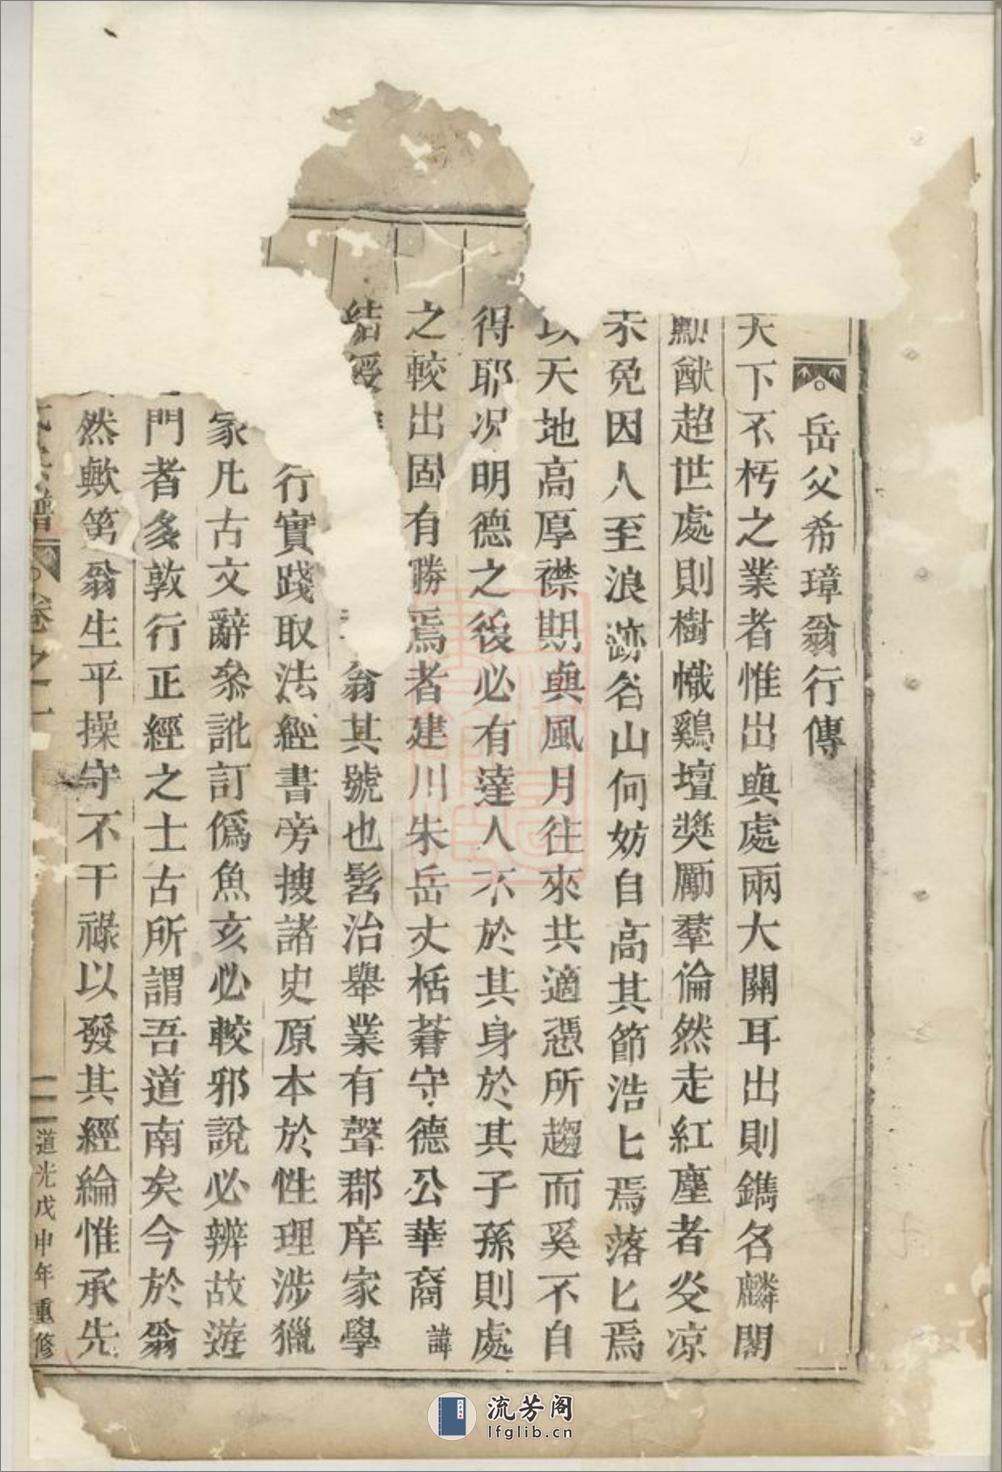 岳父希璋翁行傳
天下不朽之業者惟出與處兩大關耳出則鐫名麟閣
勳猷超世處則樹幟鷄壇奬勵羣倫然走紅塵者炎凉
未免因人至浪跡名山何妨自高其節浩匕焉落匕焉
以天地高厚襟期與風月往來共適憑所趨而奚不自
得耶况明德之後必有達人不於其身於其子孫則處
之較出固有勝焉者建川朱岳丈栝蒼守德公華裔諱
結綬 翁其號也髫治舉業有聲郡庠家學
行實踐取法經書旁搜諸史原本於性理涉獵
家凡古文辭叅訛訂僞魚亥必較邪說必辨故遊
門者多敦行正經之士古所謂吾道南矣今於翁
然歟第翁生平操守不干祿以發其經綸惟承先
譜 卷之一 二 道光戊申年重修
流芳阁
lfglib.cn